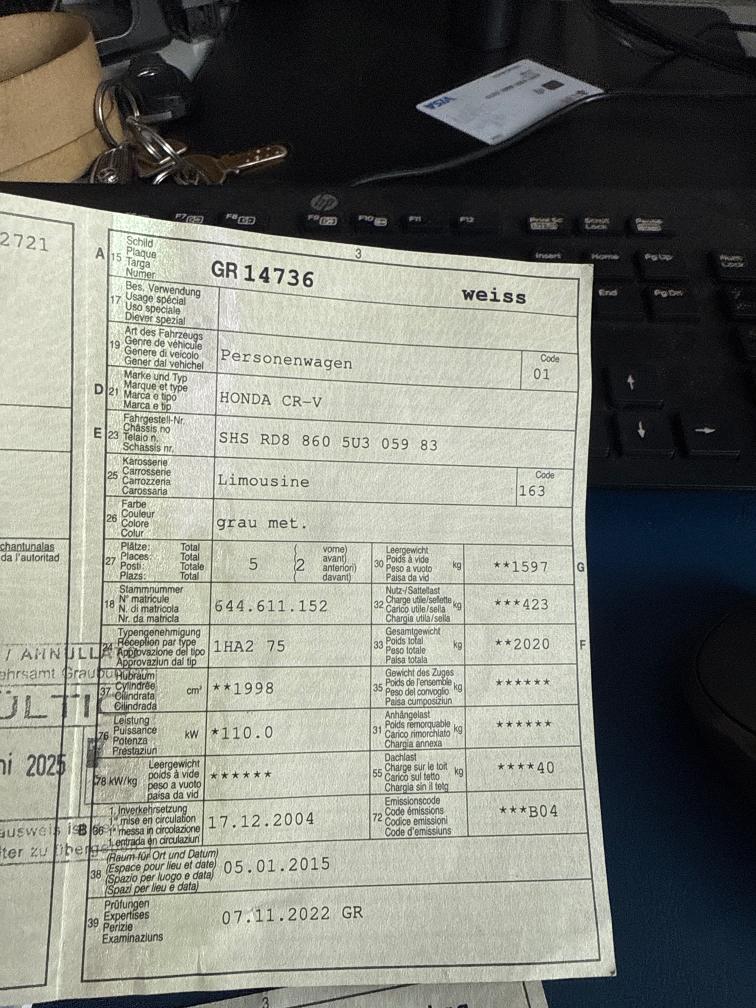 VISA
hp
F7
F8
F9
F10
F11
F12
Insert
Home
Pg Up
End
Pg Dn
2721
3
A 15 Schild
Plaque
Targa
Numer
GR 14736
weiss
17 Bes. Verwendung
Usage spécial
Uso speciale
Diever spezial
19 Art des Fahrzeugs
Genre de véhicule
Genere di veicolo
Gener dal vehichel
Personenwagen
Code
01
D 21 Marke und Typ
Marque et type
Marca e tipo
Marca e tip
HONDA CR-V
E 23 Fahrgestell-Nr.
Châssis no
Telaio n.
Schassis nr.
SHS RD8 860 5U3 059 83
25 Karosserie
Carrosserie
Carrozzeria
Carossaria
Limousine
Code
163
26 Farbe
Couleur
Colore
Colur
grau met.
27 Plätze: Total
Places: Total
Posti: Totale
Plazs: Total
5 (2 vorne)
avant)
anteriori)
davant)
30 Leergewicht
Poids à vide
Peso a vuoto
Paisa da vid
kg
**1597
G
18 Stammnummer
N° matricule
N. di matricola
Nr. da matricla
644.611.152
32 Nutz-/Sattellast
Charge utile/sellette
Carico utile/sella
Chargia utila/sella
kg
***423
24 Typengenehmigung
Réception par type
Approvazione del tipo
Approvaziun dal tip
1HA2 75
33 Gesamtgewicht
Poids total
Peso totale
Paisa totala
kg
**2020
F
37 Hubraum
Cylindrée
Cilindrata
Cilindrada
cm³
**1998
35 Gewicht des Zuges
Poids de l'ensemble
Peso del convoglio
Paisa cumposiziun
kg
******
76 Leistung
Puissance
Potenza
Prestaziun
kW
*110.0
31 Anhängelast
Poids remorquable
Carico rimorchiato
Chargia annexa
kg
******
78 kW/kg Leergewicht
poids à vide
peso a vuoto
paisa da vid
******
55 Dachlast
Charge sur le toit
Carico sul tetto
Chargia sin il tetg
kg
****40
B 36 1. Inverkehrsetzung
1re mise en circulation
1a messa in circolazione
1. entrada en circulaziun
17.12.2004
72 Emissionscode
Code émissions
Codice emissioni
Code d'emissiuns
***B04
38 (Raum für Ort und Datum)
(Espace pour lieu et date)
(Spazio per luogo e data)
(Spazi per lieu e data)
05.01.2015
39 Prüfungen
Expertises
Perizie
Examinaziuns
07.11.2022 GR
chantunalas
da l'autoritad
/ ANNULLA
ÜLTI
ni 2025
ausweis is
ter zu überge
3